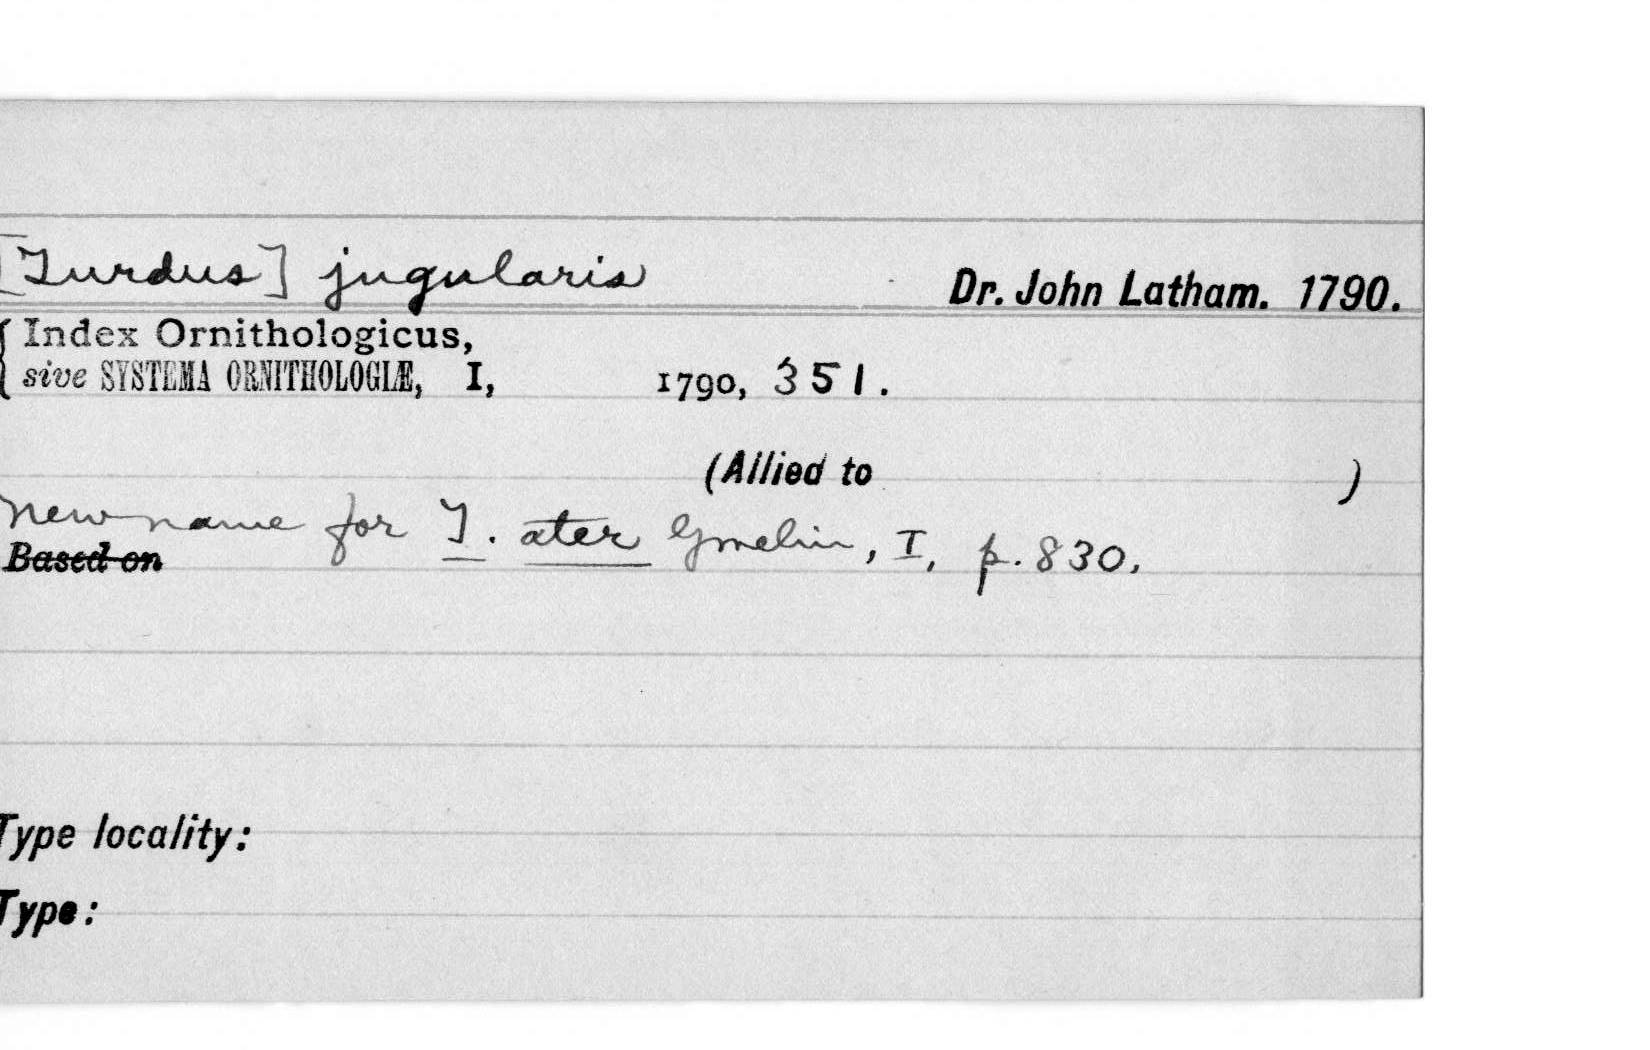 [Turdus] jugularis Dr. John Latham. 1790.
Index Ornithologicus,
sive SYSTEMA ORNITHOLOGIÆ, I, 1790, 351.
(Allied to )
New name for T. ater Gmelin, I, p. 830.
Based on
Type locality:
Type: